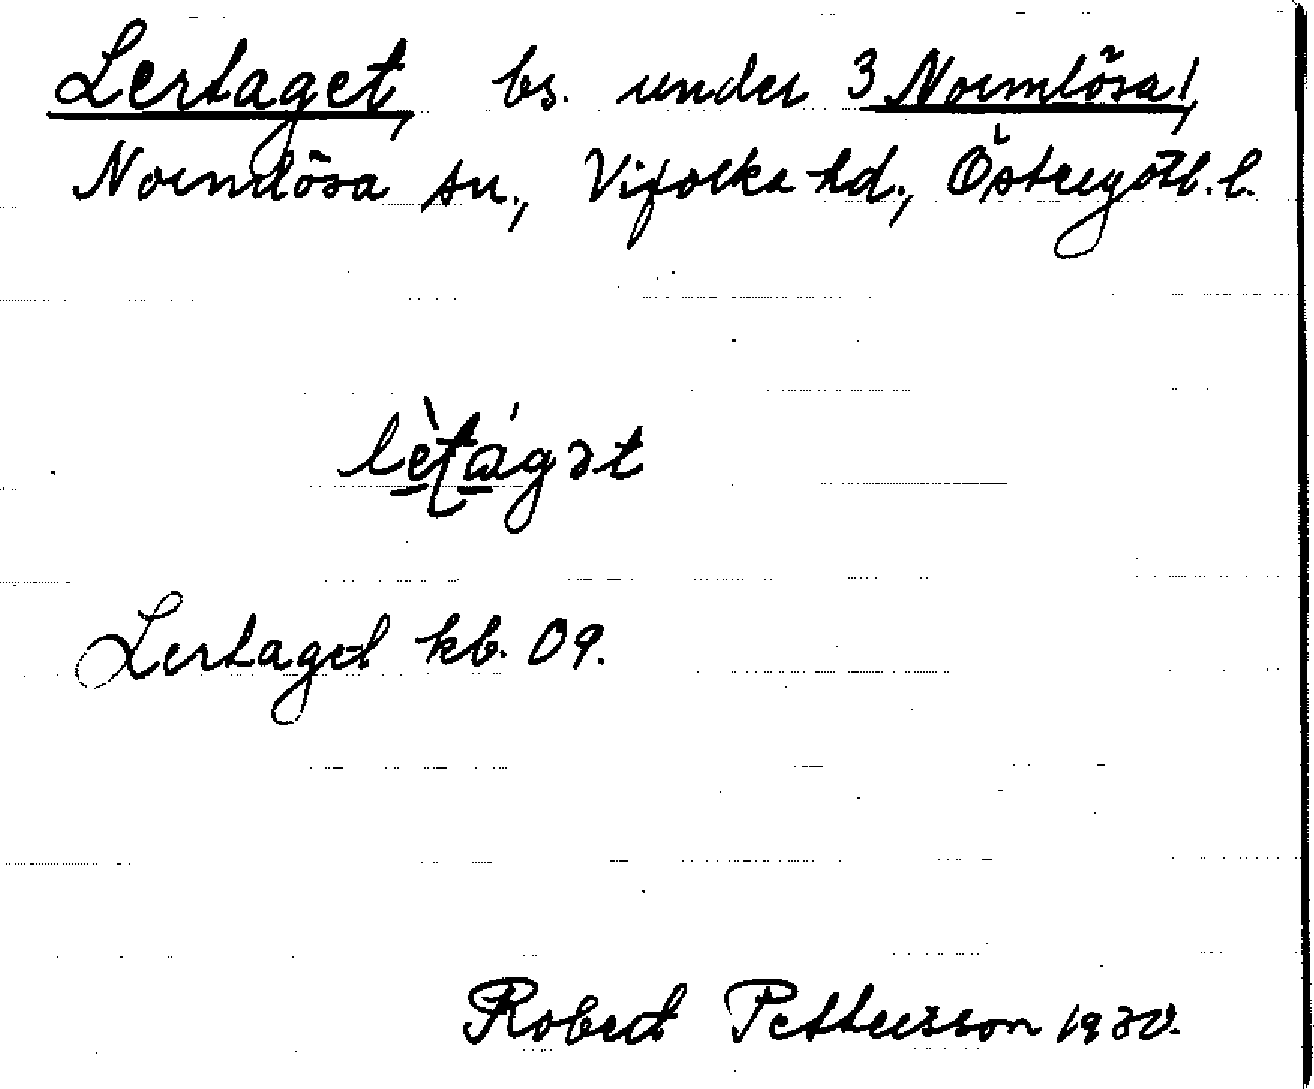 Lertaget, bs. under 3 Normlösa!,
Normlösa sn., Vifolka hd., Östergötl. l.
Lertaget kb. 09.
Robert Pettersson 1930.